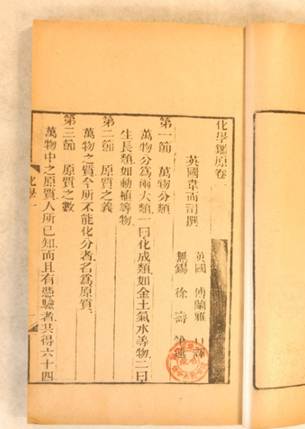 化學鑑原卷一
英國韋而司撰
英國 傅蘭雅 口譯
無錫 徐壽 筆述
第一節 萬物分類
萬物分爲兩大類一曰化成類如金土氣水等物二曰
生長類如動植等物
第二節 原質之義
萬物之質今所不能化分者名爲原質
第三節 原質之數
萬物中之原質人所已知而且有憑驗者共得六十四
化學一